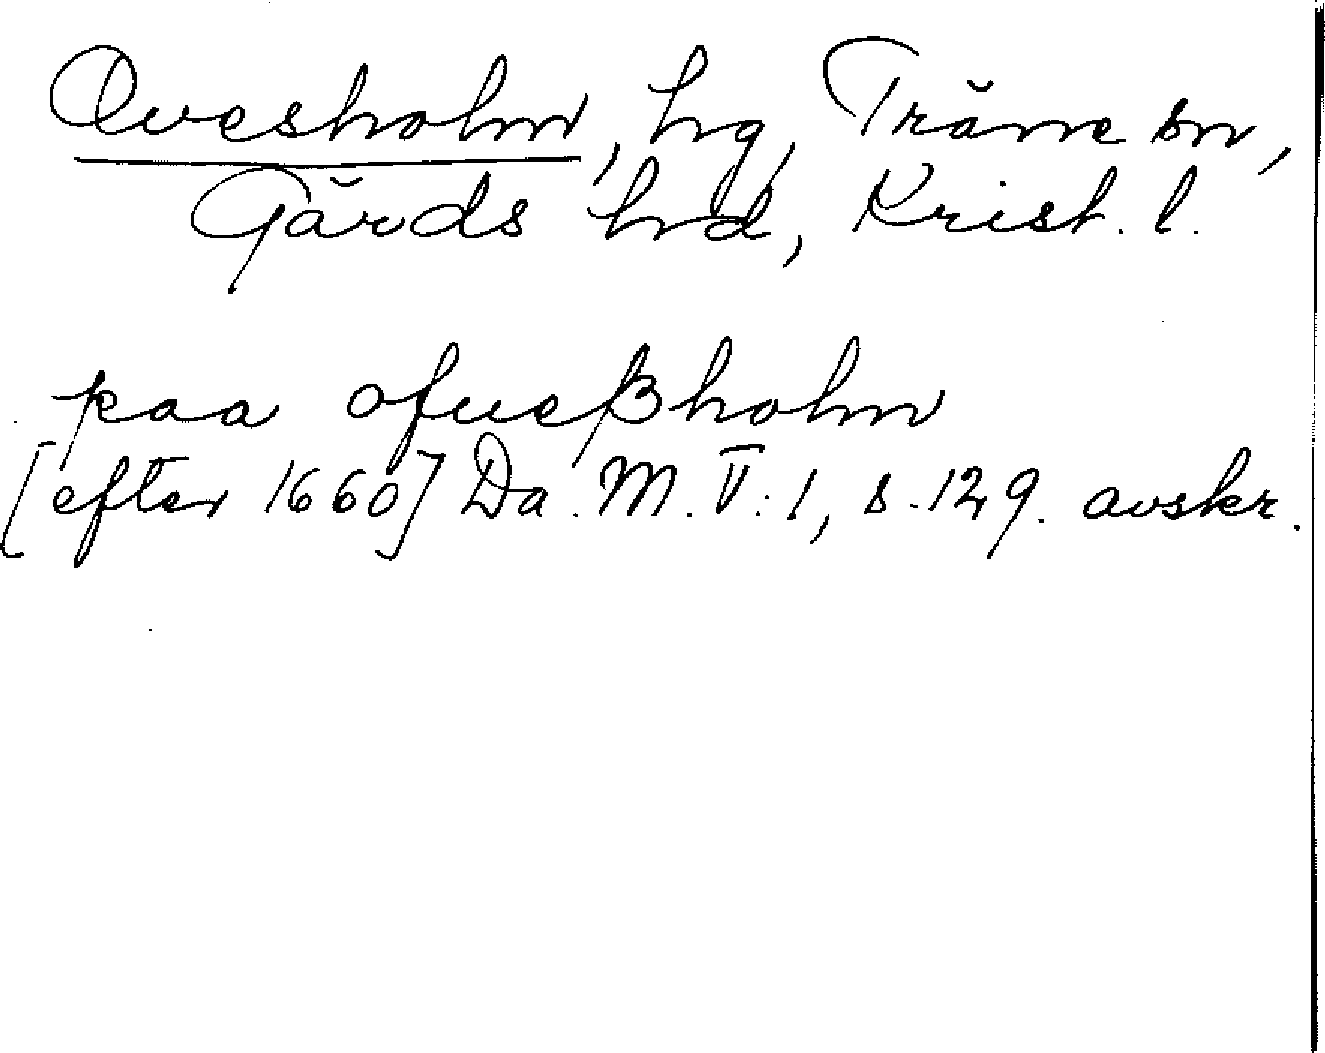 Ovesholm, hg, Träne sn,
Gärds hd, Krist. l.
paa ofueßholm
[efter 1660] Da. M. V: 1, s. 129. avskr.